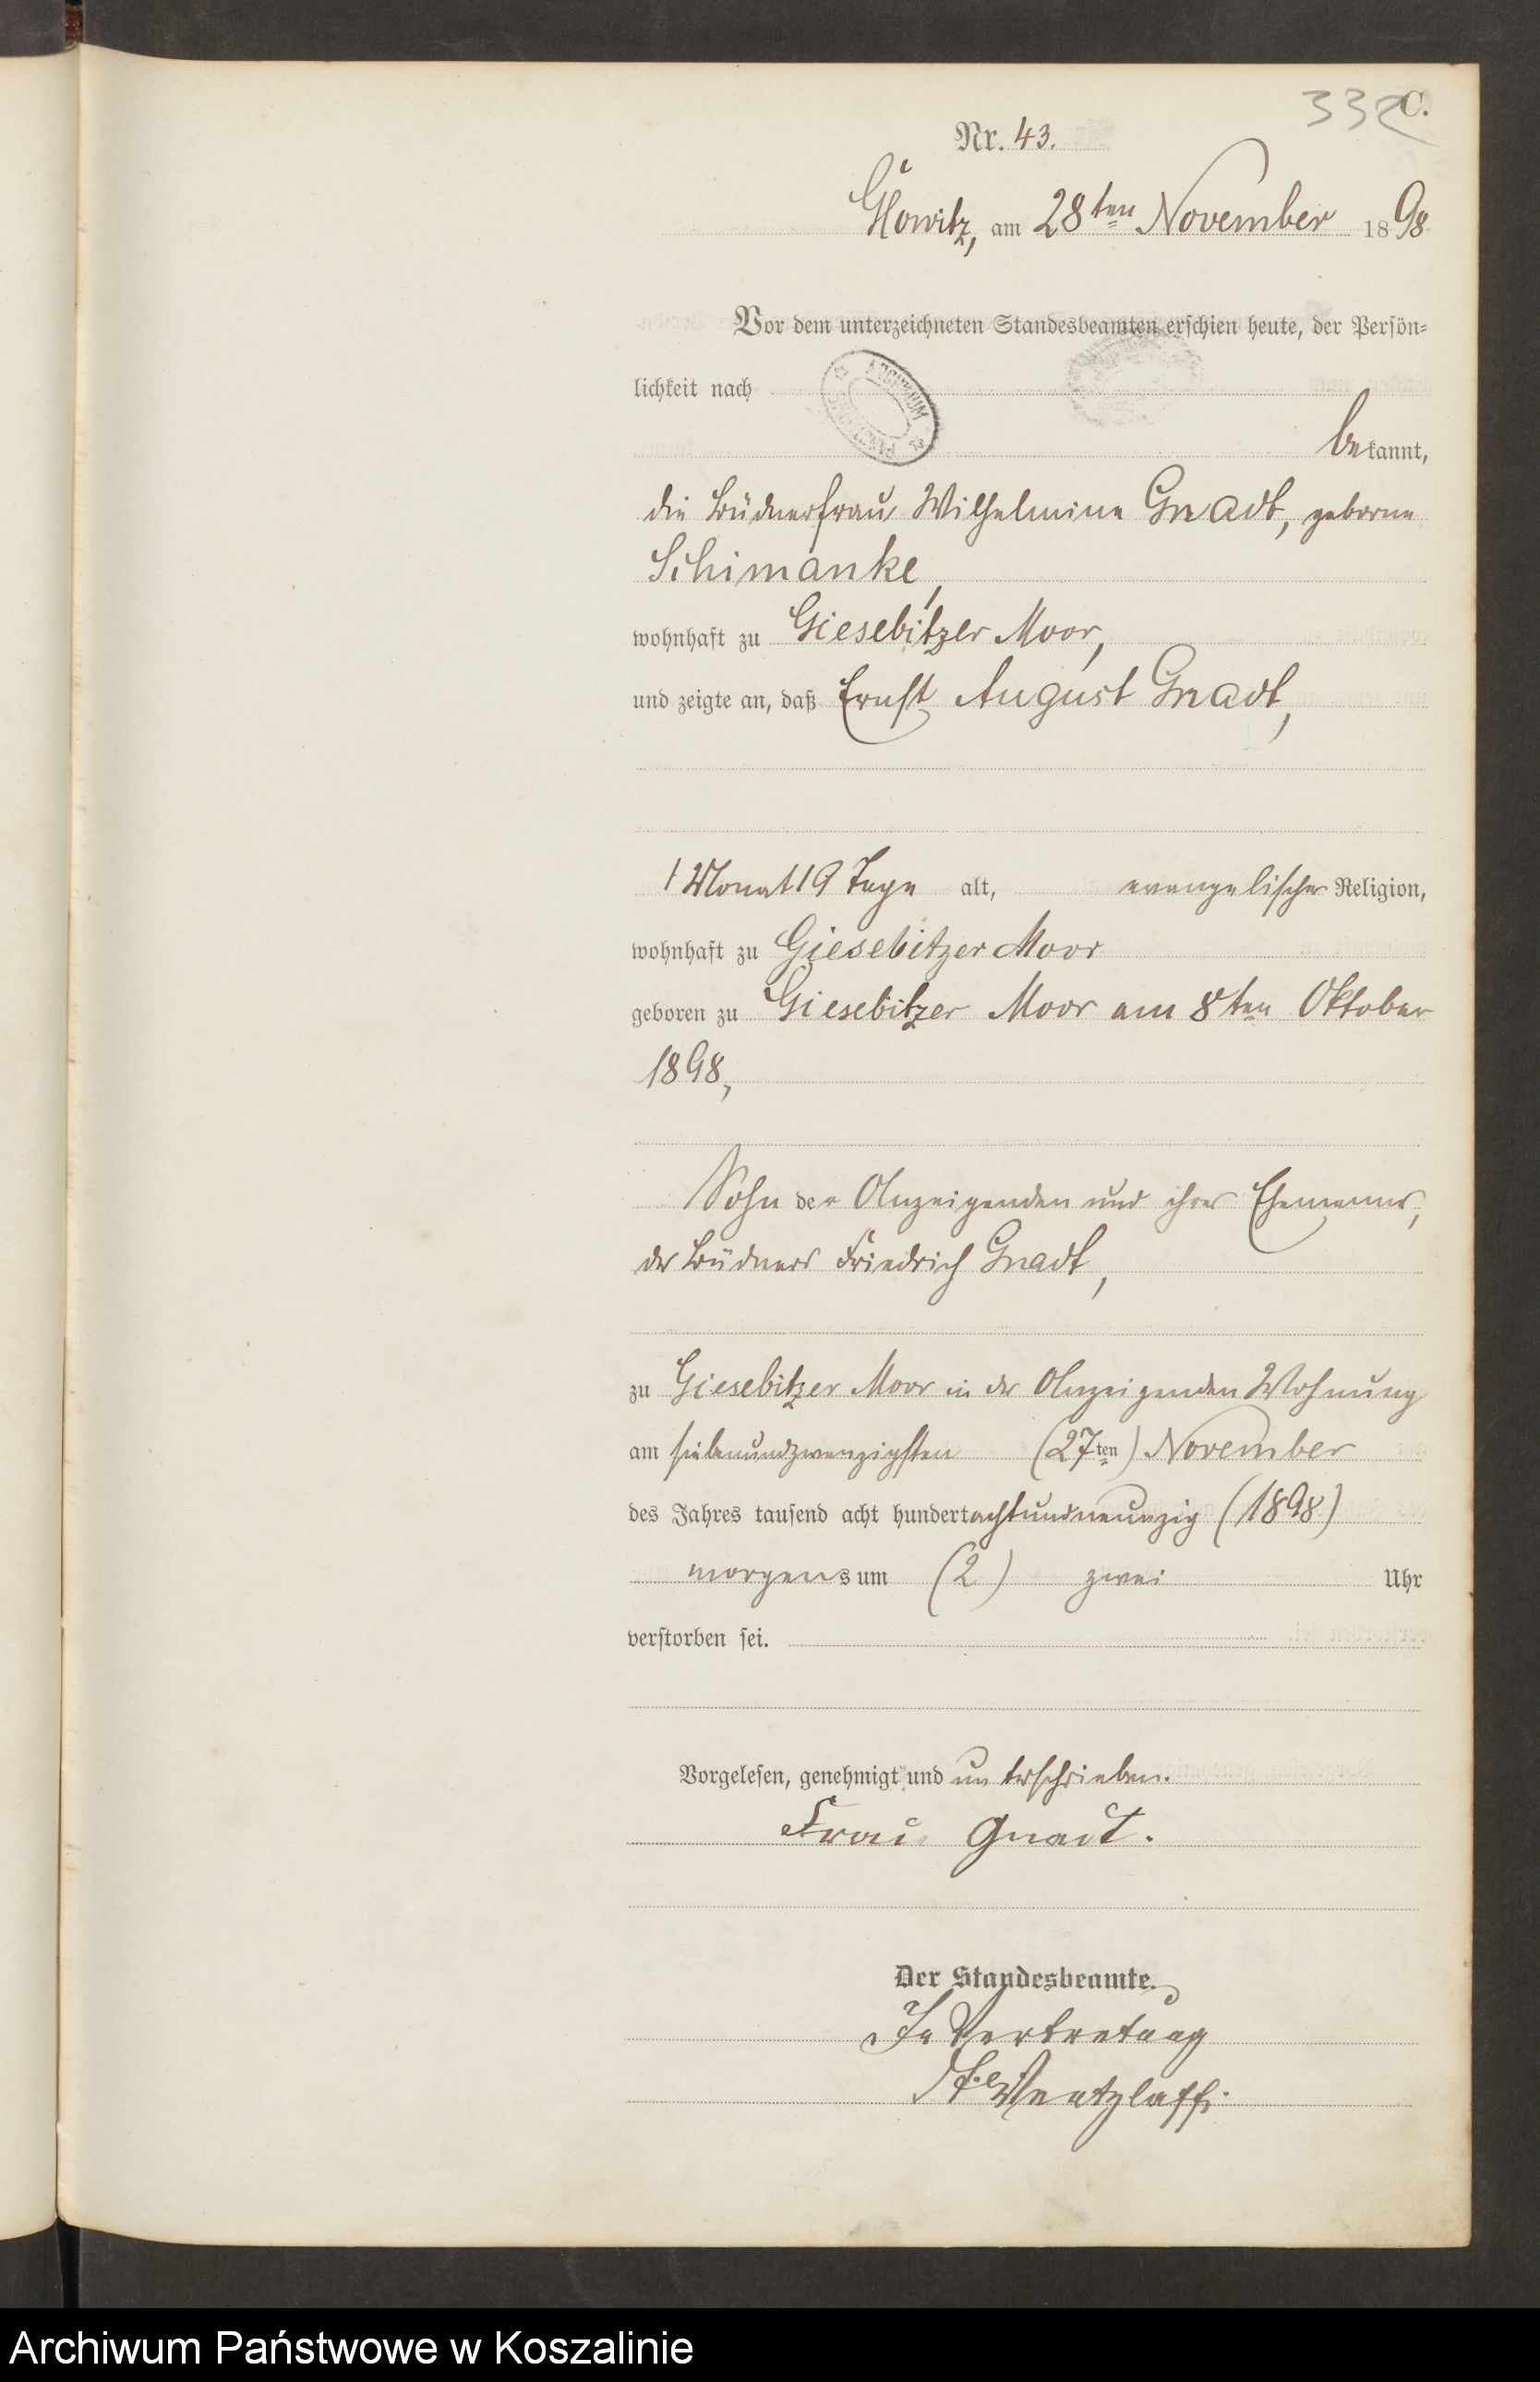 332
C.
Nr. 43.
Glowitz, am 28ten November 1898
Vor dem unterzeichneten Standesbeamten erschien heute, der Persön-
lichkeit nach
ARCHIWUM PAŃSTWOWE
bekannt,
die Büdnerfrau Wilhelmine Gnadt, geborne
Schimanke,
wohnhaft zu Giesebitzer Moor,
und zeigte an, daß Ernst August Gnadt,
1 Monat 19 Tage alt, evangelischer Religion,
wohnhaft zu Giesebitzer Moor
geboren zu Giesebitzer Moor am 8ten Oktober
1898,
Sohn der Anzeigenden und ihres Ehemannes,
des Büdners Friedrich Gnadt,
zu Giesebitzer Moor in der Anzeigenden Wohnung
am siebenundzwanzigsten (27ten) November
des Jahres tausend acht hundert achtundneunzig (1898)
morgens um (2) zwei Uhr
verstorben sei.
Vorgelesen, genehmigt und unterschrieben.
Frau Gnadt.
Der Standesbeamte.
In Vertretung
Wentzlaff.
Archiwum Państwowe w Koszalinie